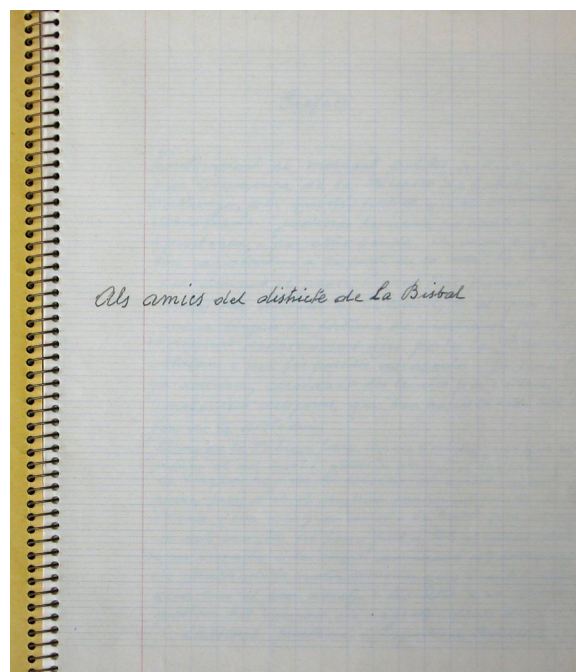 Als amics del districte de La Bisbal